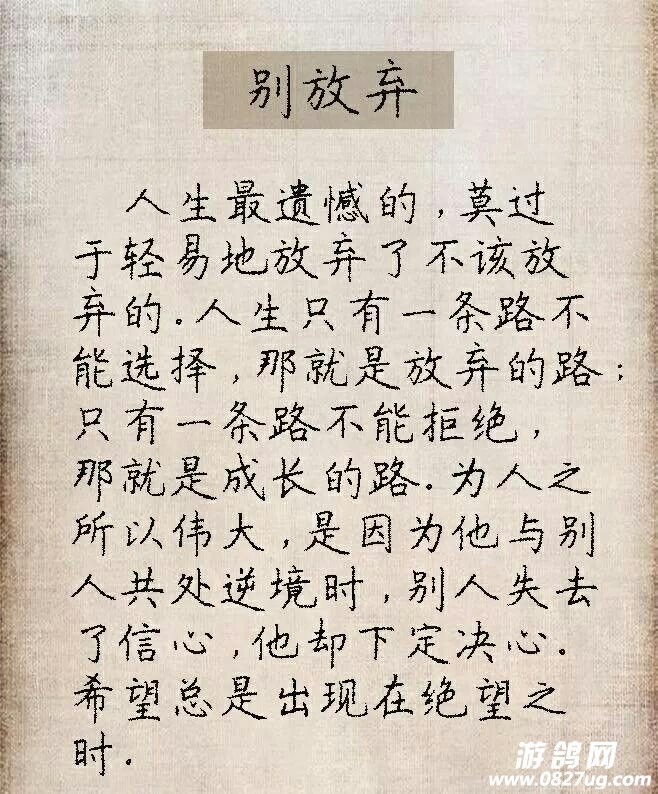 别放弃
人生最遗憾的，莫过
于轻易地放弃了不该放
弃的。人生只有一条路不
能选择，那就是放弃的路；
只有一条路不能拒绝，
那就是成长的路。为人之
所以伟大，是因为他与别
人共处逆境时，别人失去
了信心，他却下定决心。
希望总是出现在绝望之
时。
游鸽网
www.0827ug.com